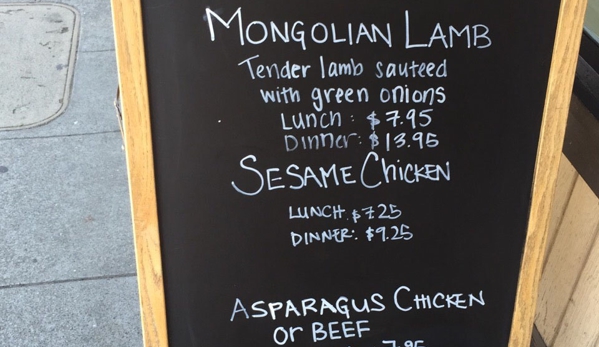 MONGOLIAN LAMB
Tender lamb sauteed
with green onions
LUNCH: $7.95
DINNER: $13.95
SESAME CHICKEN
LUNCH $7.25
DINNER: $9.25
ASPARAGUS CHICKEN
OR BEEF
7.95